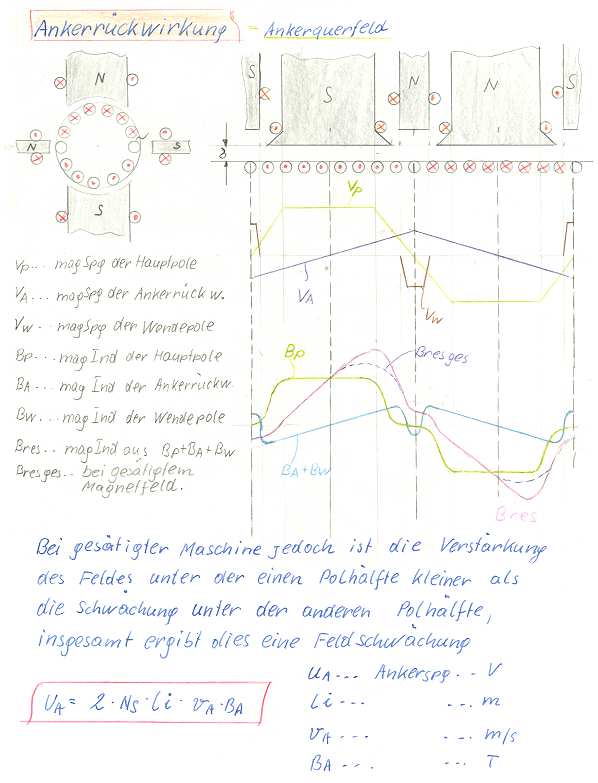 Ankerrückwirkung – Ankerquerfeld
N
N
S
S
S
S
N
N
S
δ
Vp
VA
Vw
Vp... magSpg der Hauptpole
VA... magSpg der Ankerrückw.
Vw... magSpg der Wendepole
Bp... magInd der Hauptpole
BA... magInd der Ankerrückw
Bw... magInd der Wendepole
Bres... magInd aus Bp+BA+Bw
Bresges.. bei gesätigtem
Magnetfeld.
Bp
Bresges
BA+Bw
Bres
Bei gesätigter Maschine jedoch ist die Verstärkung
des Feldes unter der einen Polhälfte kleiner als
die Schwächung unter der anderen Polhälfte,
insgesamt ergibt dies eine Feldschwächung
UA = 2·Ns·li·vA·BA
UA... Ankerspg... V
li... ... m
vA... ... m/s
BA... ... T